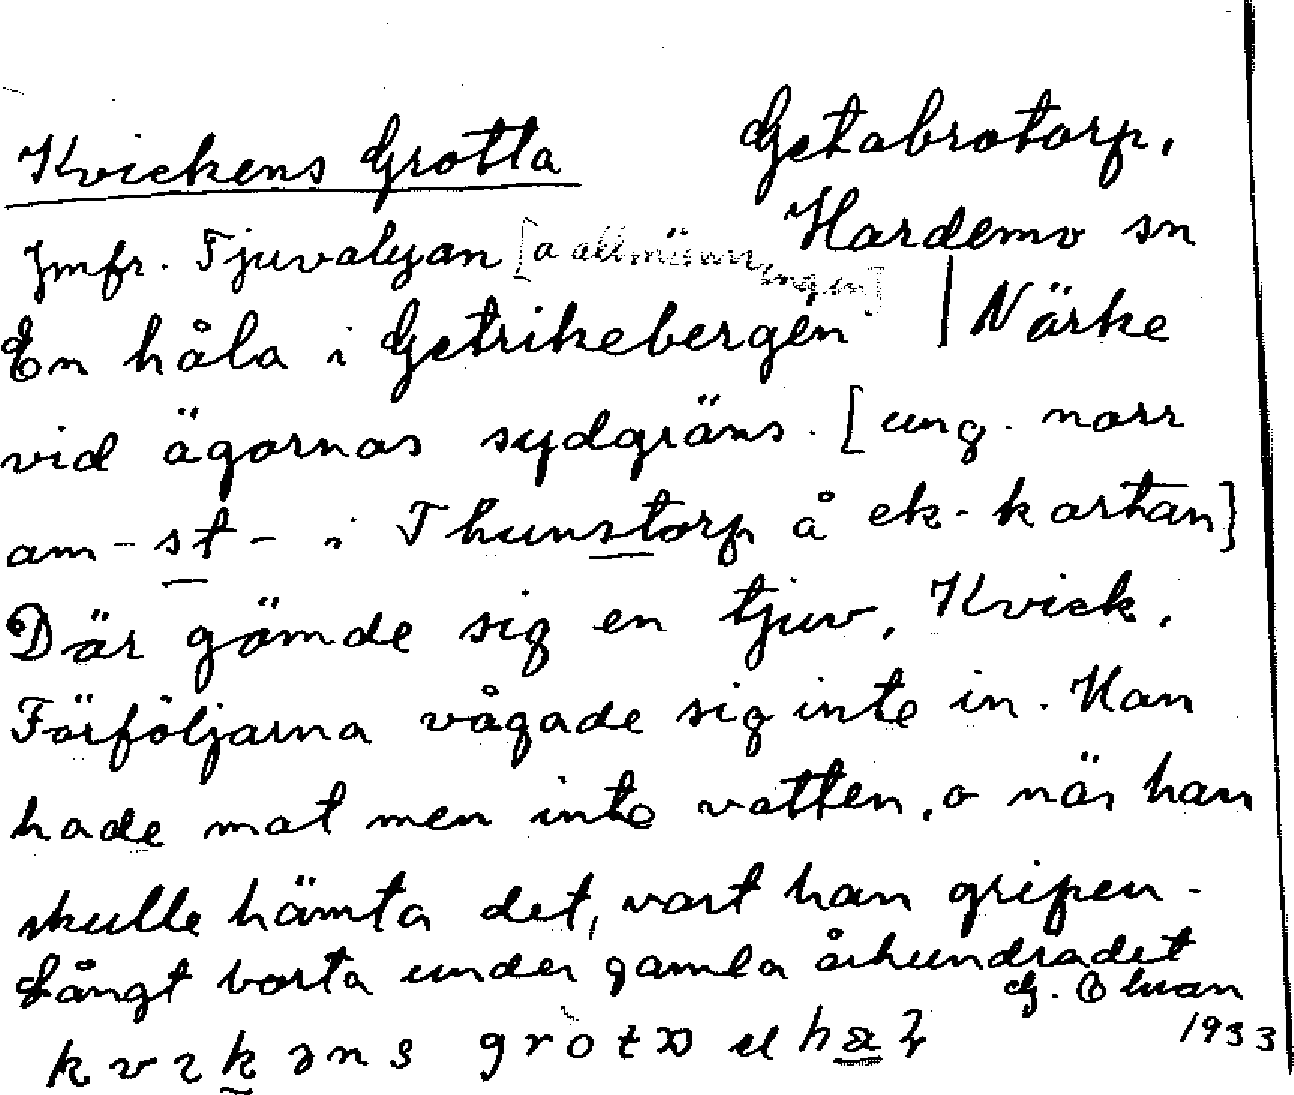 Kvickens Grotta
Getabrotorp,
Hardemo sn
Närke
Jmfr. Tjuvalyan [a allmänningen]
En håla i Getrikebergen
vid ägornas sydgräns. [ung. norr
om -st- i Thunstorp å ek-kartan]
Där gömde sig en tjuv, Kvick.
Förföljarna vågade sig inte in. Han
hade mat men inte vatten, o när han
skulle hämta det, vart han gripen.
Långt borta under gamla århundradet
G. Ohman
1933